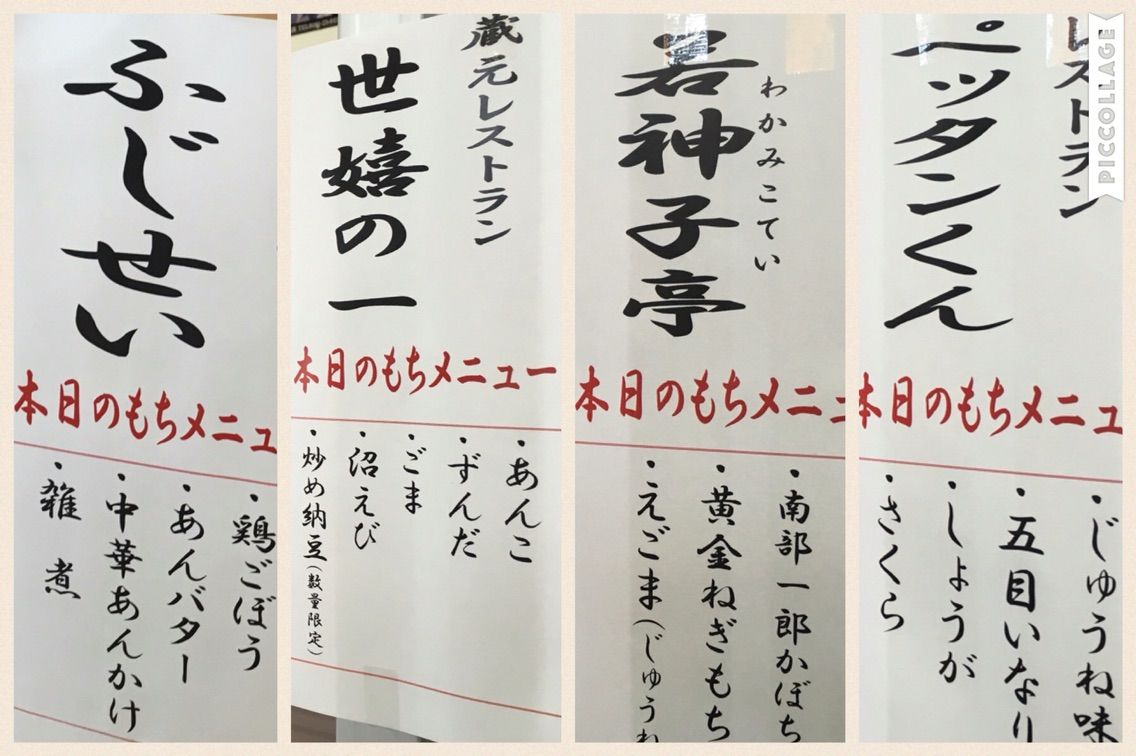 ふじせい
本日のもちメニュ
・鶏ごぼう
・あんバター
・中華あんかけ
・雑煮
蔵元レストラン
世嬉の一
本日のもちメニュー
・あんこ
・ずんだ
・ごま
・沼えび
・炒め納豆(数量限定)
わかみこてい
若神子亭
本日のもちメニュ
・南部一郎かぼち
・黄金ねぎもち
・えごま(じゅうね
レストラン
ペッタンくん
本日のもちメニュ
・じゅうね味
・五目いなり
・しょうが
・さくら
PICCOLLAGE